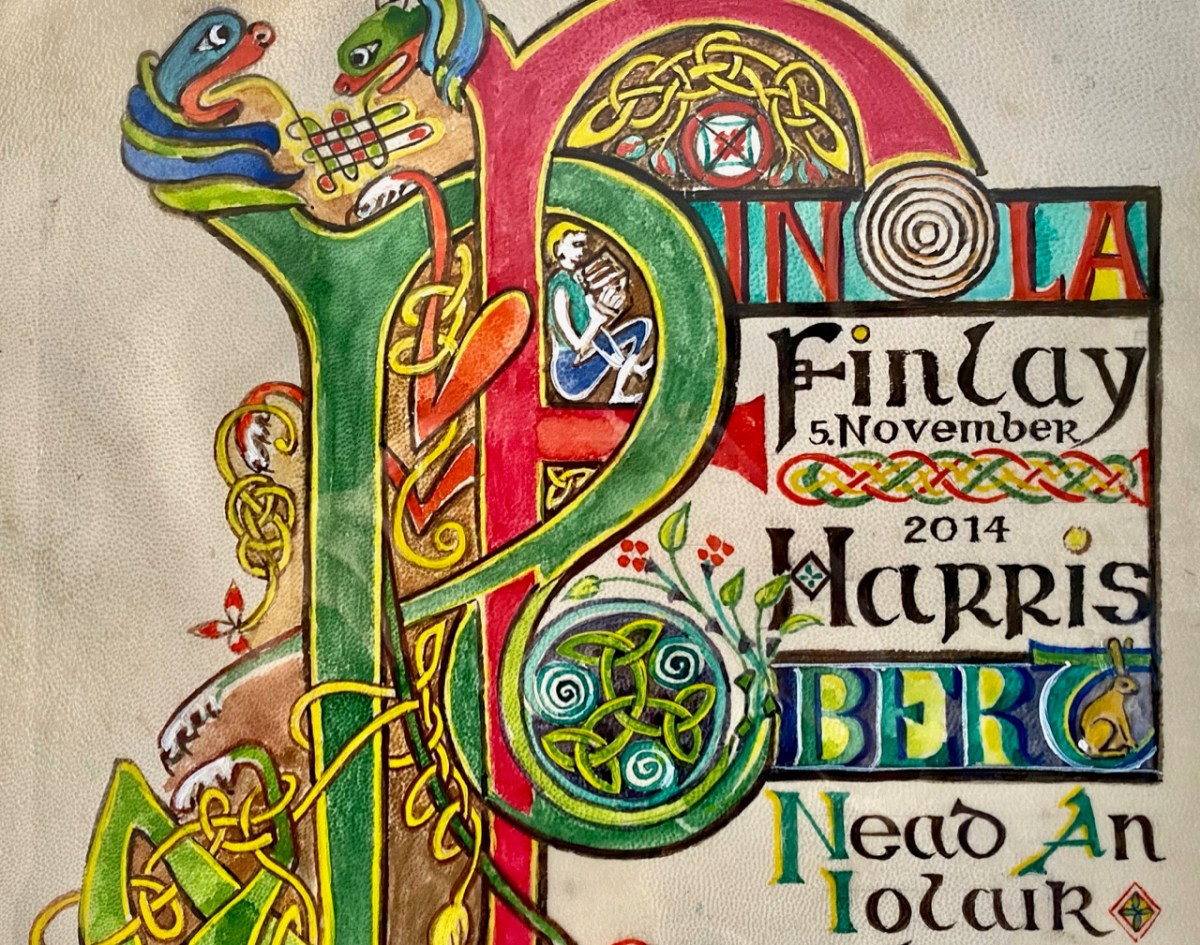 FINOLA
Finlay
5.November
2014
Harris
ROBERT
Nead An
Iolair